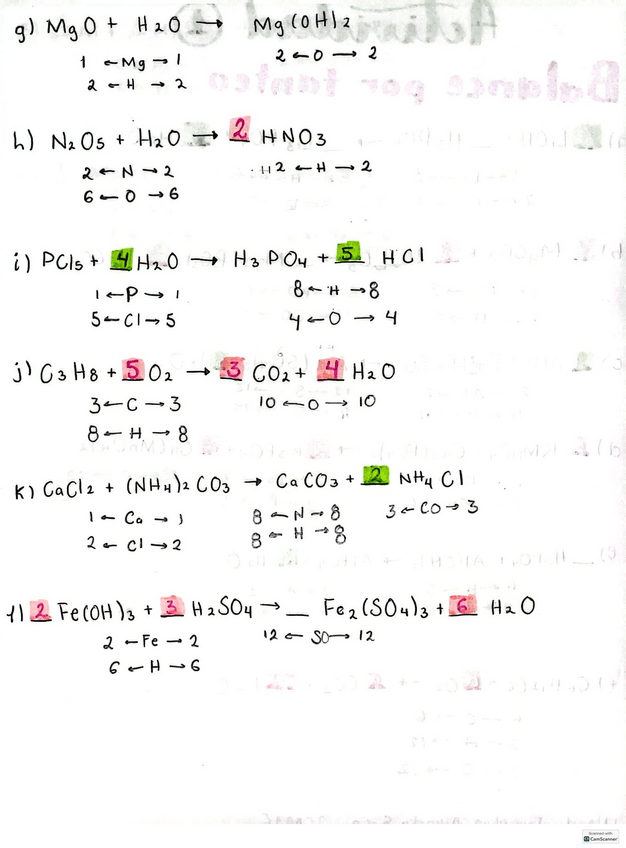 g) MgO + H2O → Mg(OH)2
1 ← Mg → 1 2 ← O → 2
2 ← H → 2
h) N2O5 + H2O → 2 HNO3
2 ← N → 2 H2 ← H → 2
6 ← O → 6
i) PCl5 + 4 H2O → H3PO4 + 5 HCl
1 ← P → 1 8 ← H → 8
5 ← Cl → 5 4 ← O → 4
j) C3H8 + 5 O2 → 3 CO2 + 4 H2O
3 ← C → 3 10 ← O → 10
8 ← H → 8
k) CaCl2 + (NH4)2CO3 → CaCO3 + 2 NH4Cl
1 ← Ca → 1 8 ← N → 8 3 ← CO → 3
2 ← Cl → 2 8 ← H → 8
l) 2 Fe(OH)3 + 3 H2SO4 → __ Fe2(SO4)3 + 6 H2O
2 ← Fe → 2 12 ← SO → 12
6 ← H → 6
Scanned with
CamScanner